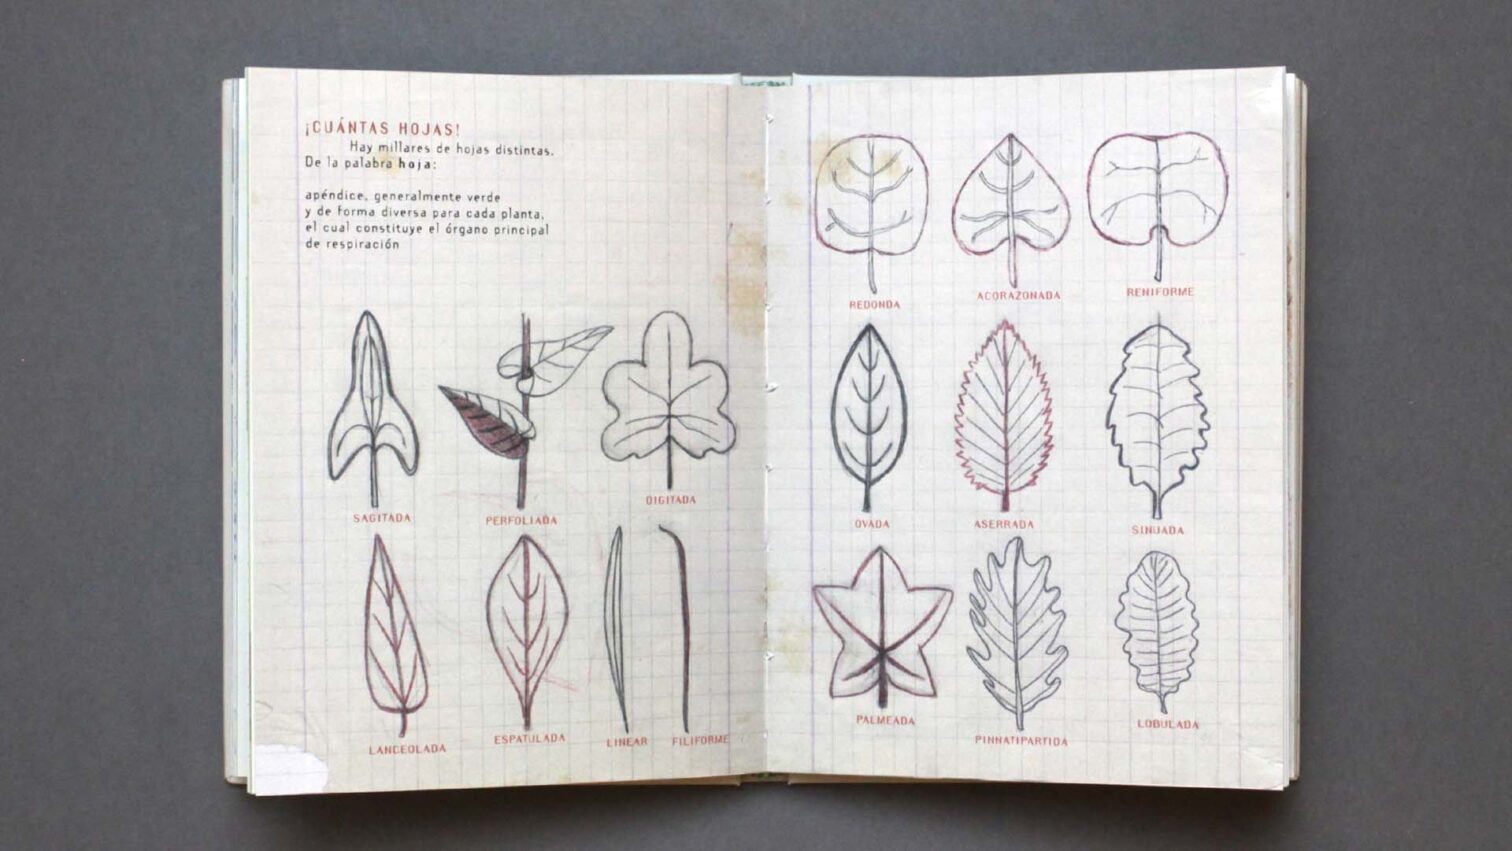 ¡CUÁNTAS HOJAS!
Hay millares de hojas distintas.
De la palabra hoja:
apéndice, generalmente verde
y de forma diversa para cada planta,
el cual constituye el órgano principal
de respiración
SAGITADA
PERFOLIADA
DIGITADA
LANCEOLADA
ESPATULADA
LINEAR
FILIFORME
REDONDA
ACORAZONADA
RENIFORME
OVADA
ASERRADA
SINUADA
PALMEADA
PINNATIPARTIDA
LOBULADA